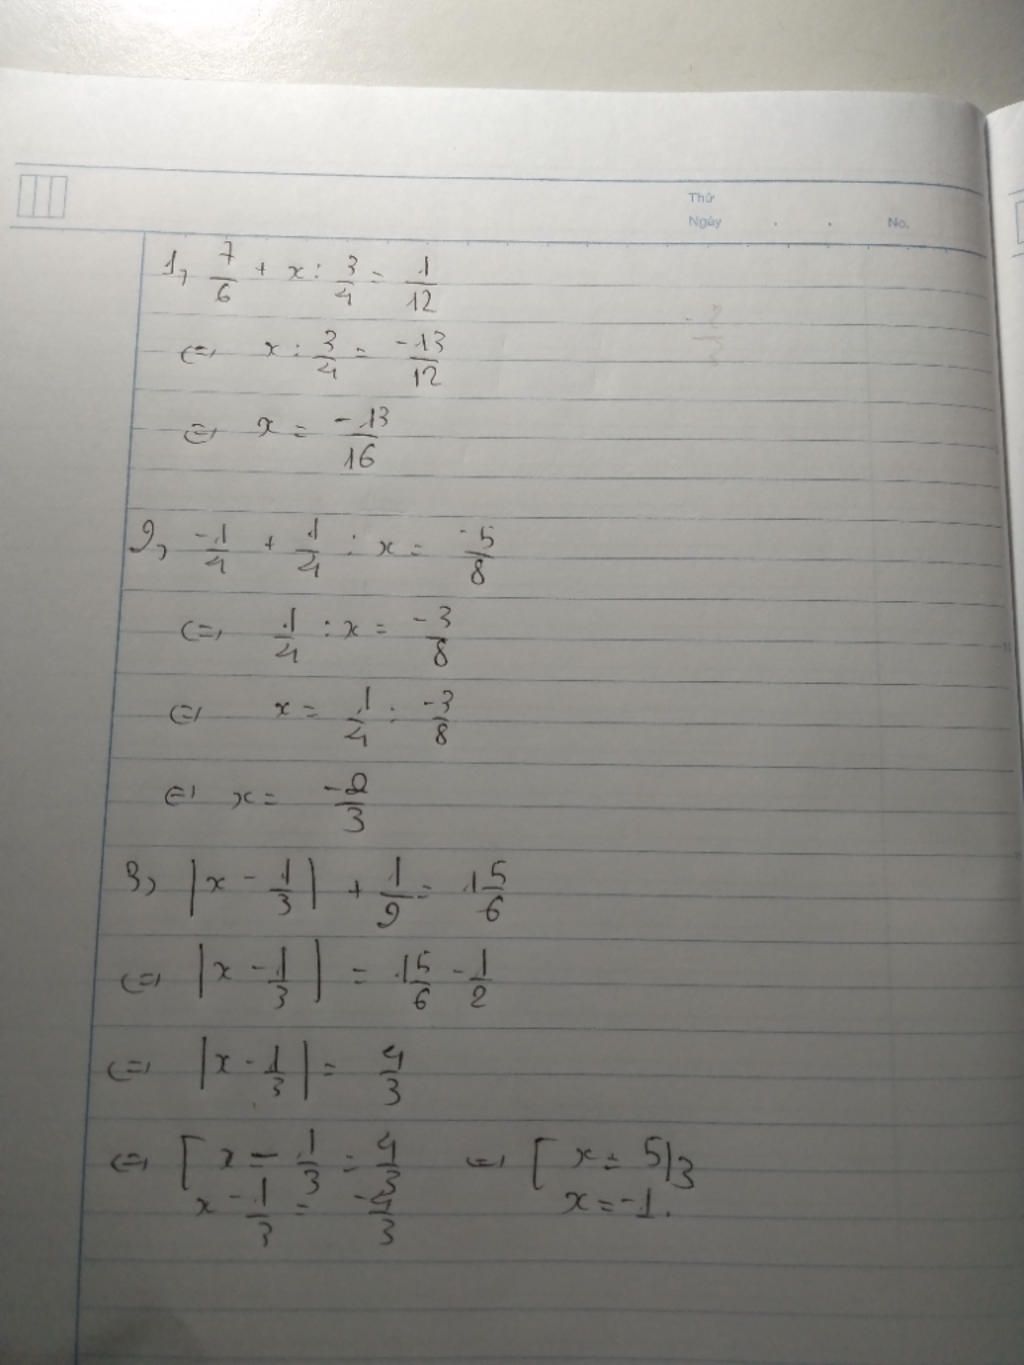 Thứ
Ngày . . No.
1, 7/6 + x : 3/4 = 1/12
⇔ x : 3/4 = -13/12
⇔ x = -13/16
2, -1/4 + 1/4 : x = -5/8
⇔ 1/4 : x = -3/8
⇔ x = 1/4 : -3/8
⇔ x = -2/3
3, |x - 1/3| + 1/2 = 1 5/6
⇔ |x - 1/3| = 1 5/6 - 1/2
⇔ |x - 1/3| = 4/3
⇔ [ x - 1/3 = 4/3 ⇔ [ x = 5/3
x - 1/3 = -4/3 x = -1.